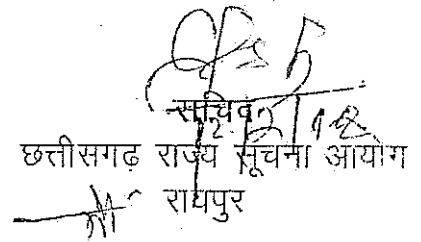 सचिव
छत्तीसगढ़ राज्य सूचना आयोग
रायपुर